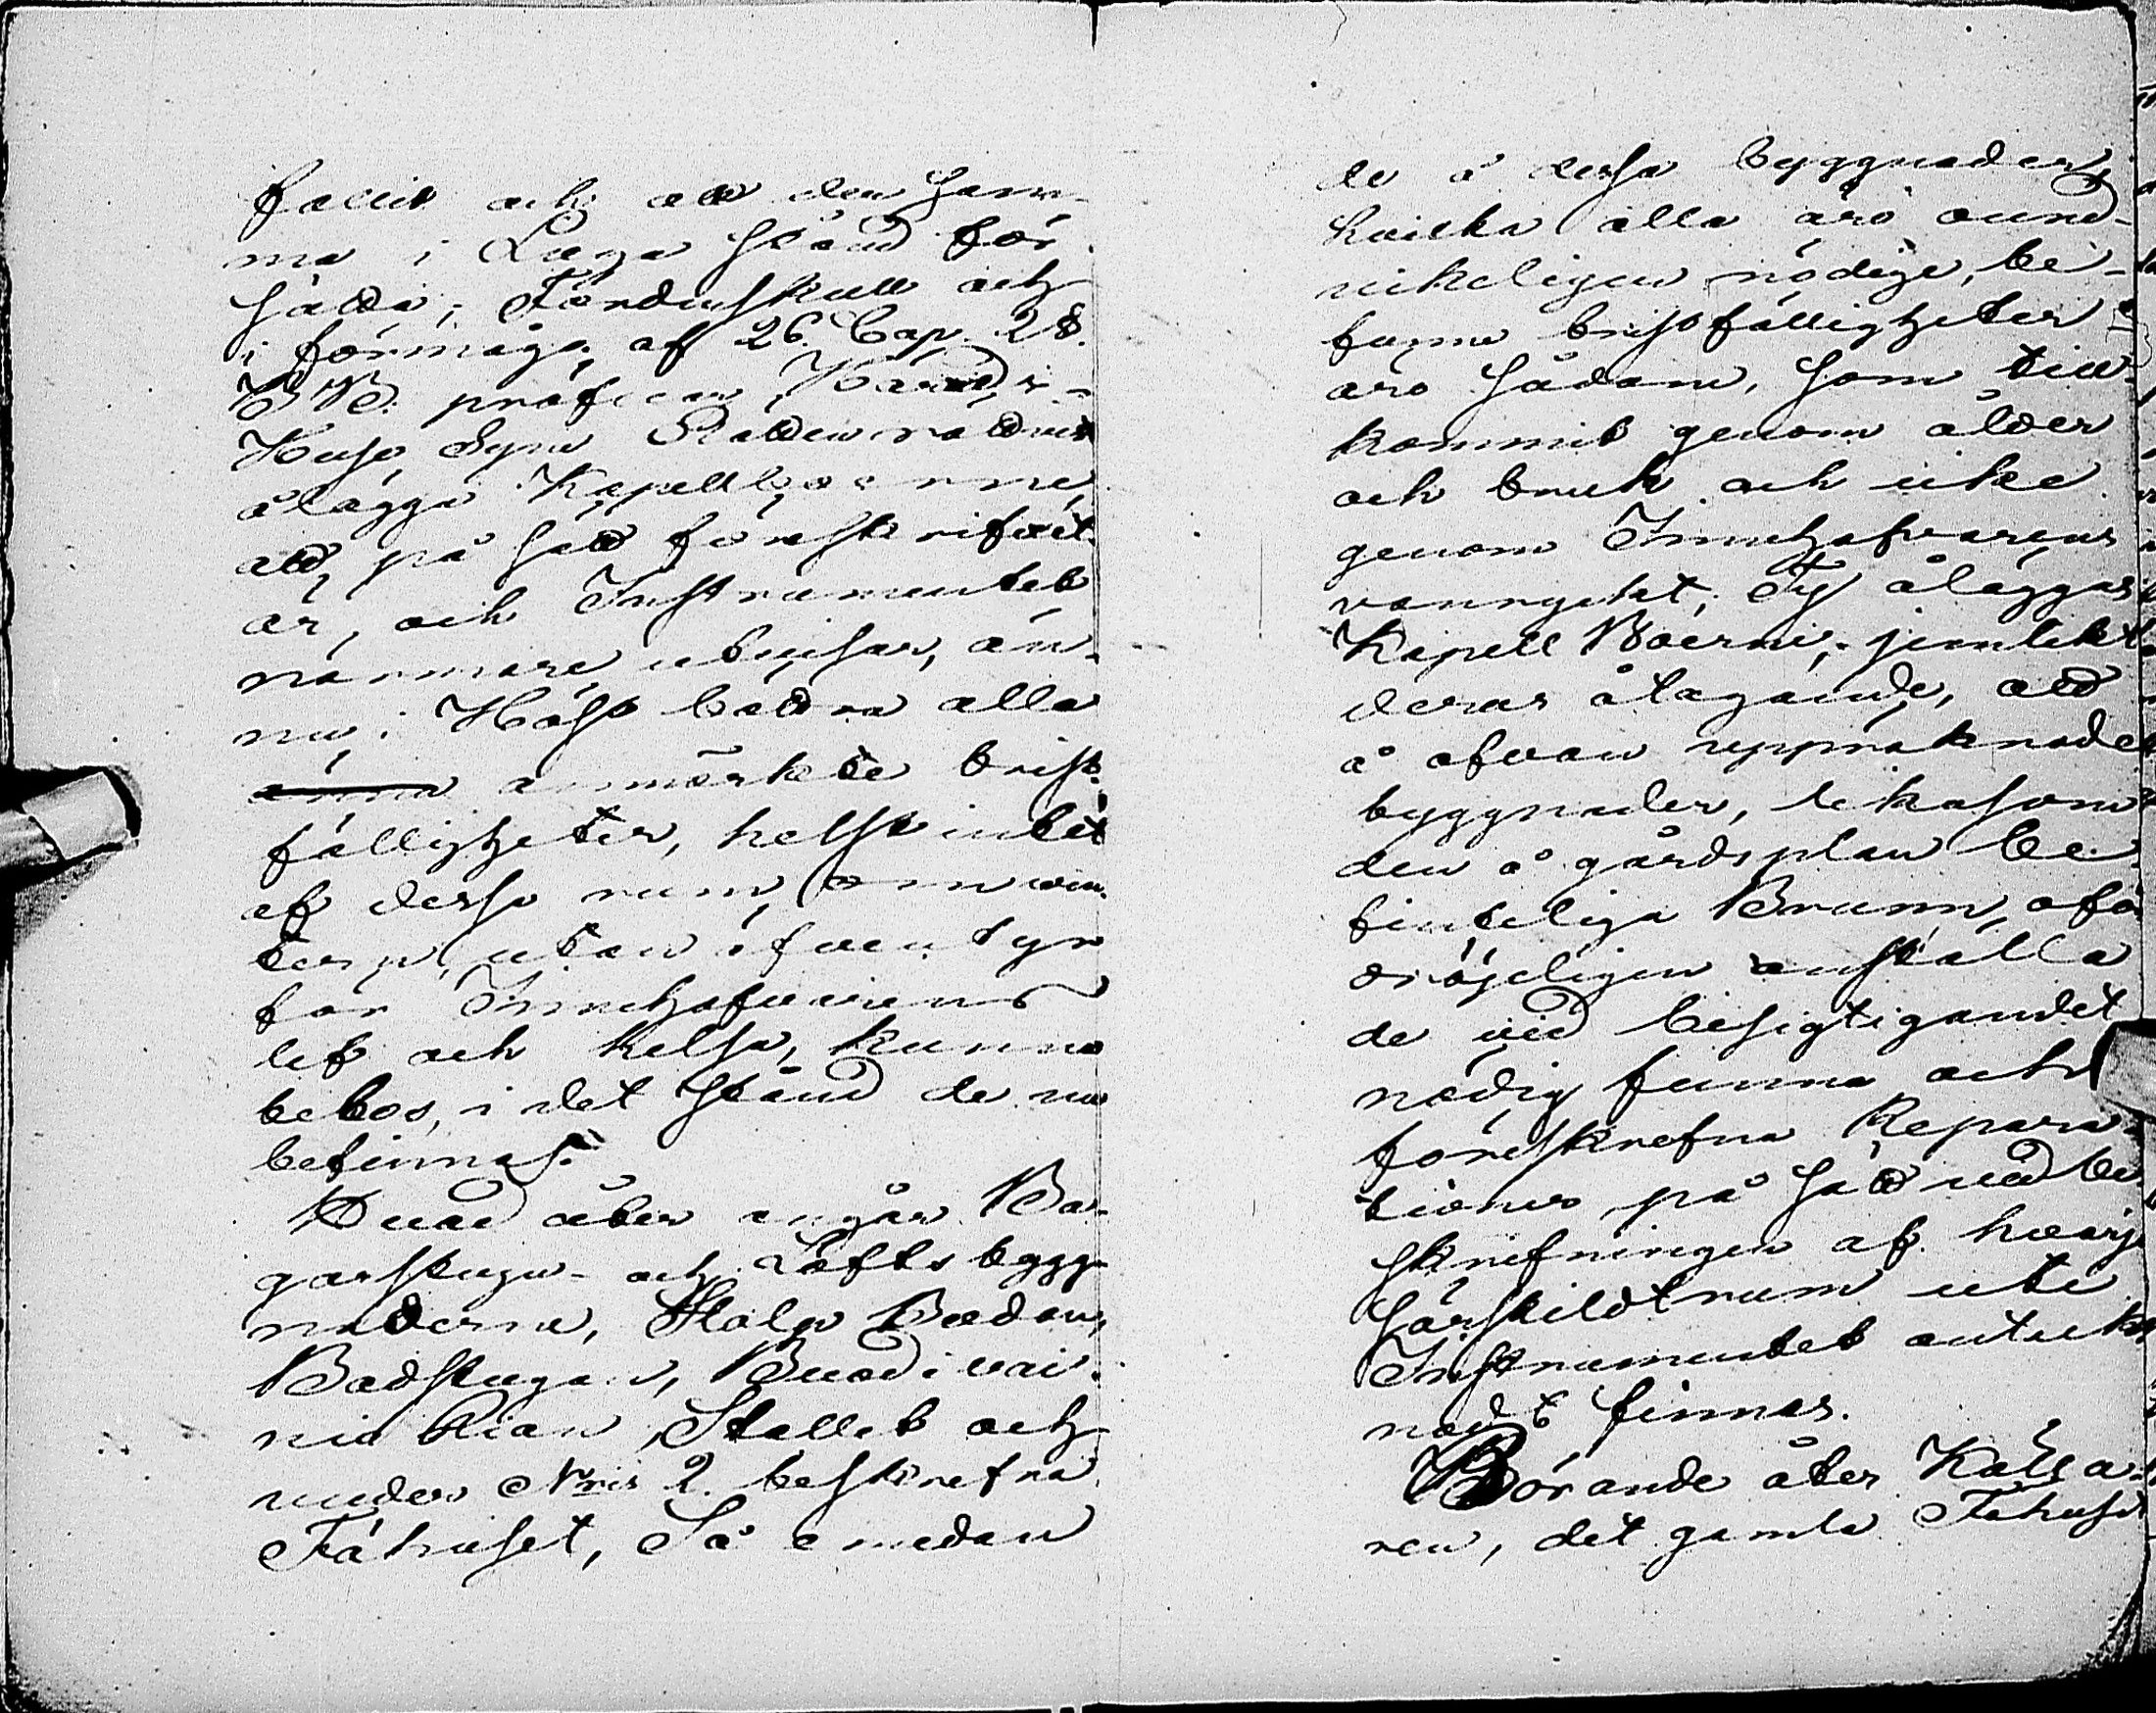 fallit och att den sam-
ma i Laga stånd för
sätta; Fördenskull och
i förmågo af 26. Cap. 2 §.
BB. pröfvar Härads-
Husp Syne Rätten rättvist
ålägga Kapellboerne
att, på sätt föreskrifvet
är, och Instrumentet
närmare utvisar, än-
nu i Höst bättra alla
ännu anmärkte brist-
fälligheter, helst intet
af dessa rum, om vin-
tern, utan äfventyr
för Innehafvarens
lif och helsa, kunna
bebos, i det stånd de nu
befinnas.
Hvad åter angår Ba-
garstugu- och Löfts bygg-
naderne, Stolp Boden,
Badstugan, Bod i vai-
nio Rian, Stallet och
under N:ris 2. beskrefna
Fähuset, Så emedan
de å dessa byggnader,
hvilka alla äro ound-
vikeligen nödige, be-
funne bristfälligheter
äro sådane, som till-
kommit genom ålder
och bruk och icke
genom Innehafvarens
vanrykt; Ty åläggas
Kapell Boerne, jemlikt
deras åtagande, att
å ofvan uppräknade
byggnader, lika som
den å gårdsplan be
finteliga Brunn, oför
dröjeligen anställa
de vid besigtigandet
nödig funna och
föreskrefna Repara-
tioner på sätt vid be
skrifningen af hvarje
särskildt rum uti
Instrumentet anteck
nadt finnes.
Börande åter Källa-
ren, det gamla Fähuset